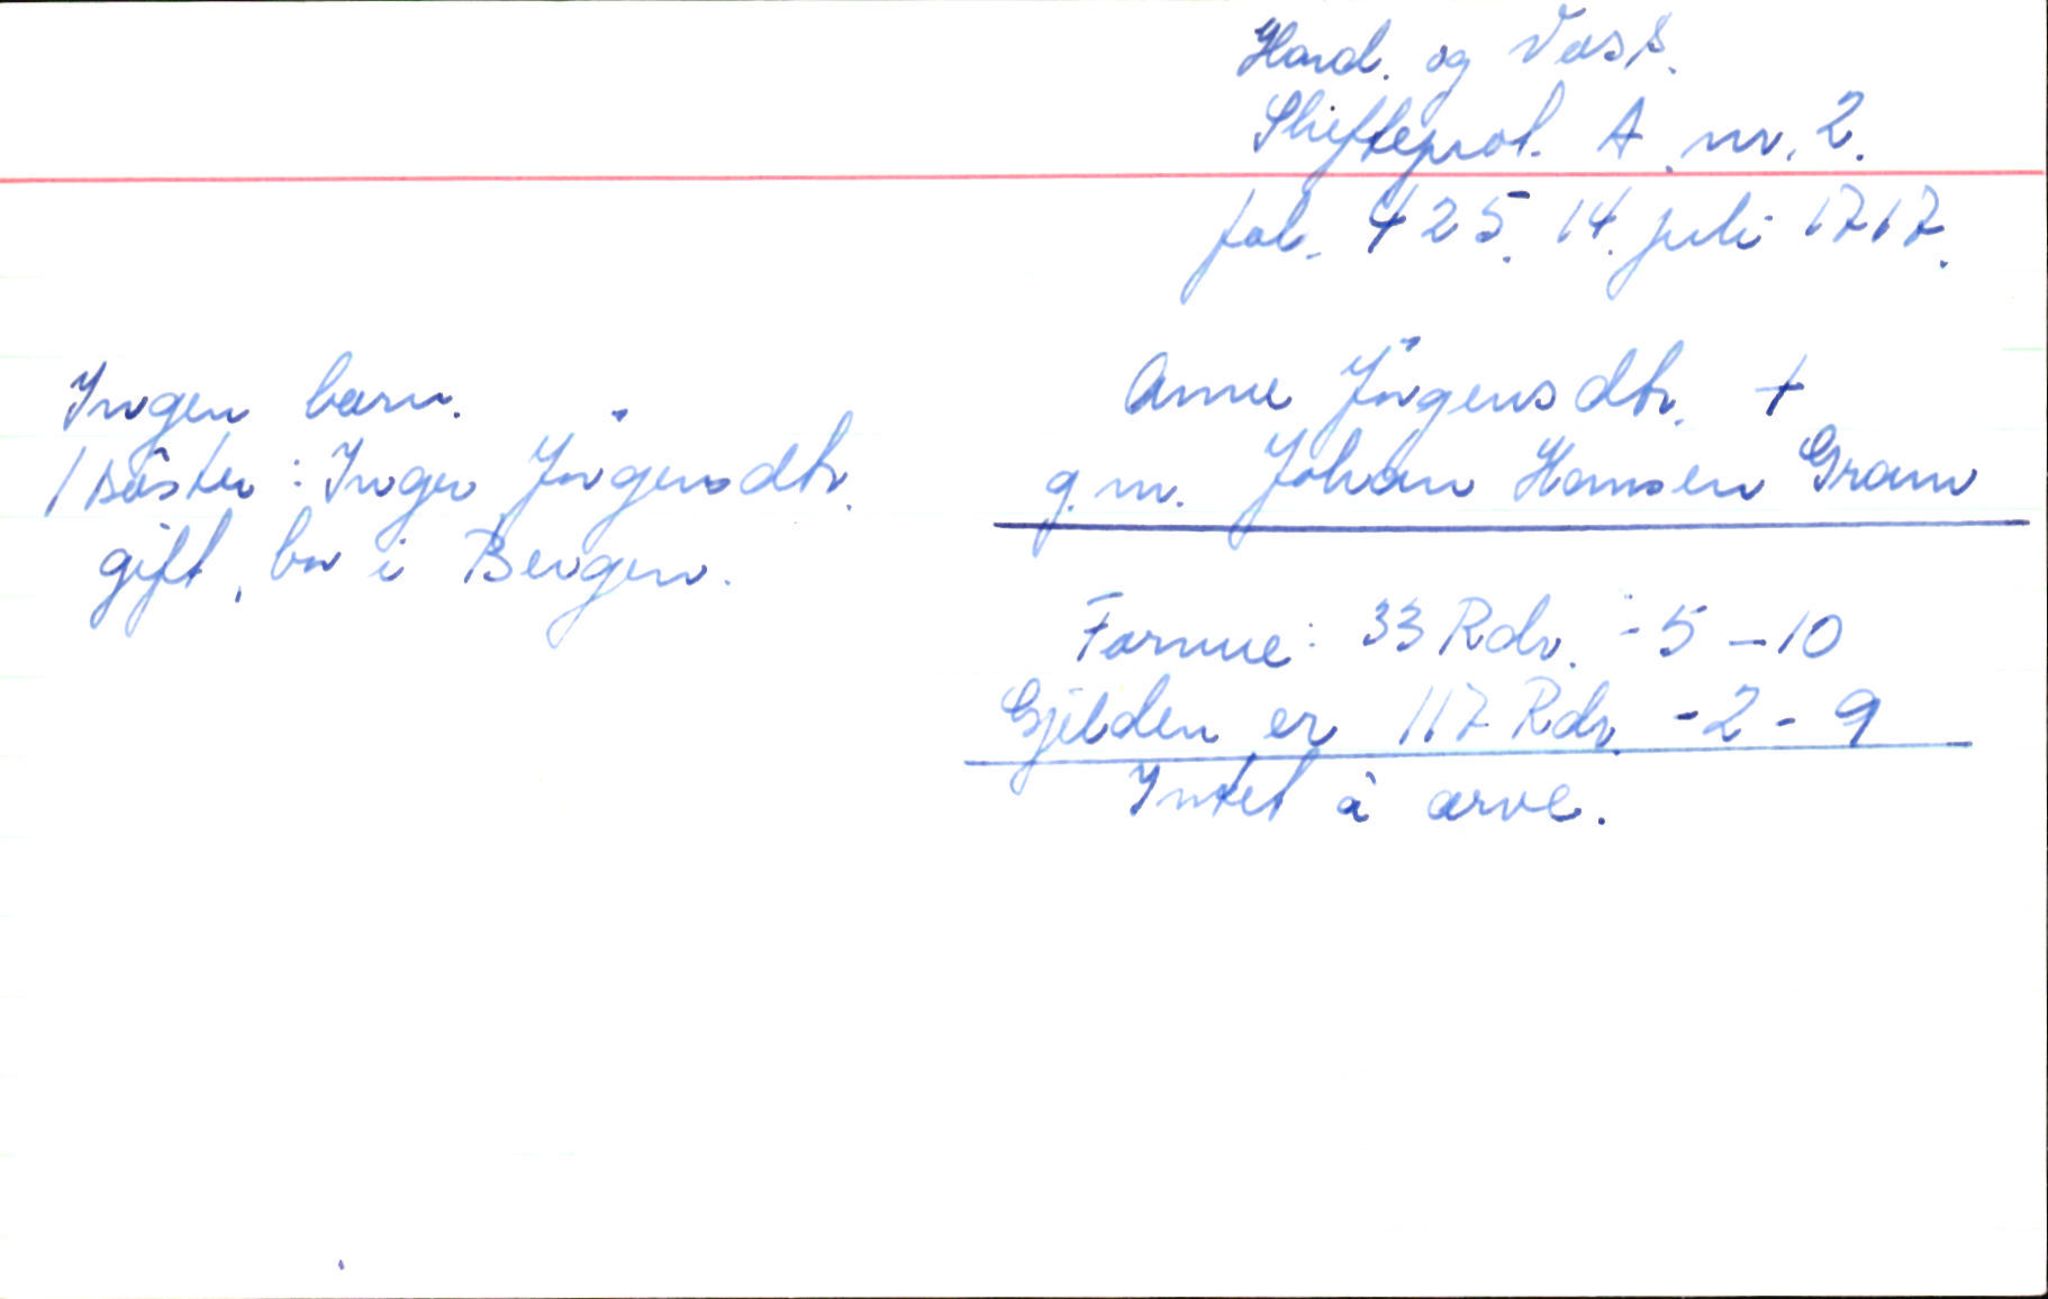 Hard. og Voss.
Skifteprot. A. nr. 2.
fol. 425. 14. juli 1717.
Anne Jörgensdtr. +
g.m. Johan Hansen Gram
Ingen barn.
1 söster: Inger Jörgensdtr.
gift, bor i Bergen.
Formue: 33 Rdr. - 5 - 10
Gjelden er 117 Rdr. - 2 - 9
Intet à arve.